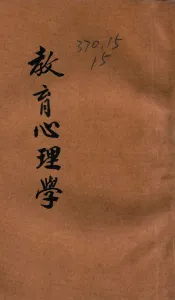 370.15
15
教育心理學